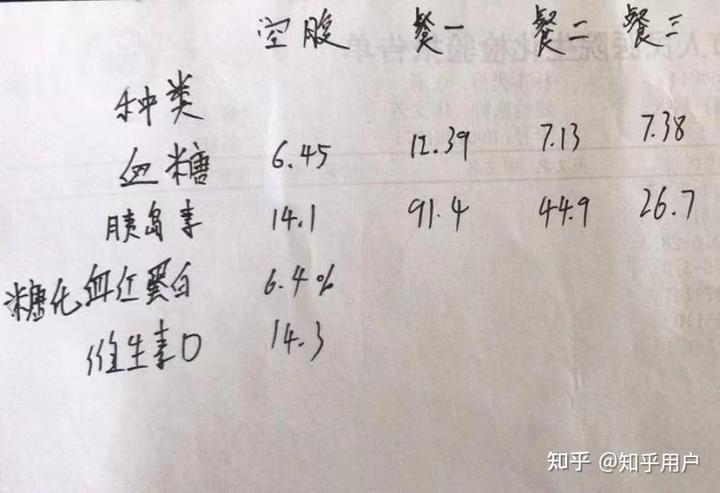 空腹 餐一 餐二 餐三
种类
血糖 6.45 12.39 7.13 7.38
胰岛素 14.1 91.4 44.9 26.7
糖化血红蛋白 6.4%
维生素D 14.3
知乎 @知乎用户